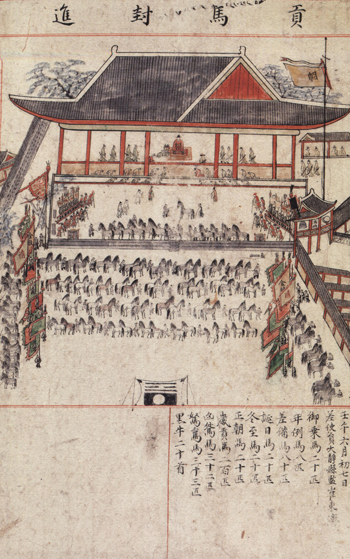 貢馬封進
壬午六月初七日
差使員大靜縣監崔東濟
御乘馬二十匹
年例馬八匹
差備馬八十匹
誕日馬二十匹
冬至馬二十匹
正朝馬二十匹
歲貢馬二百匹
凶馬三十二匹
駑駘馬三十三匹
黑牛二十首